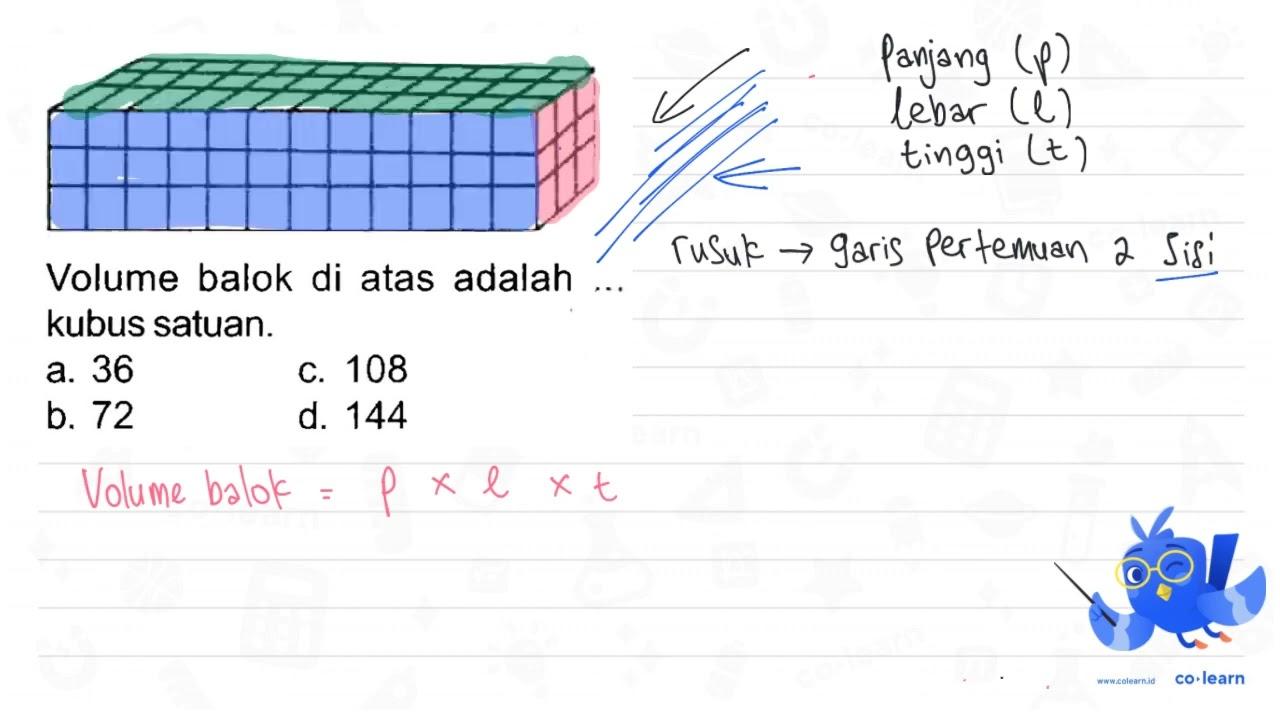 Panjang (p)
lebar (l)
tinggi (t)
rusuk → garis pertemuan 2 sisi
Volume balok di atas adalah ...
kubus satuan.
a. 36 c. 108
b. 72 d. 144
Volume balok = p × l × t
www.colearn.id co·learn